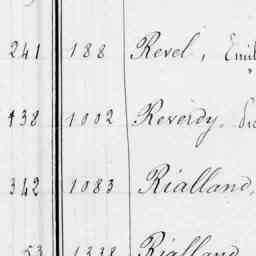 241 188 Revel, Emil
438 1002 Reverdy.
342 1083 Rialland,
53 1338 Rialland